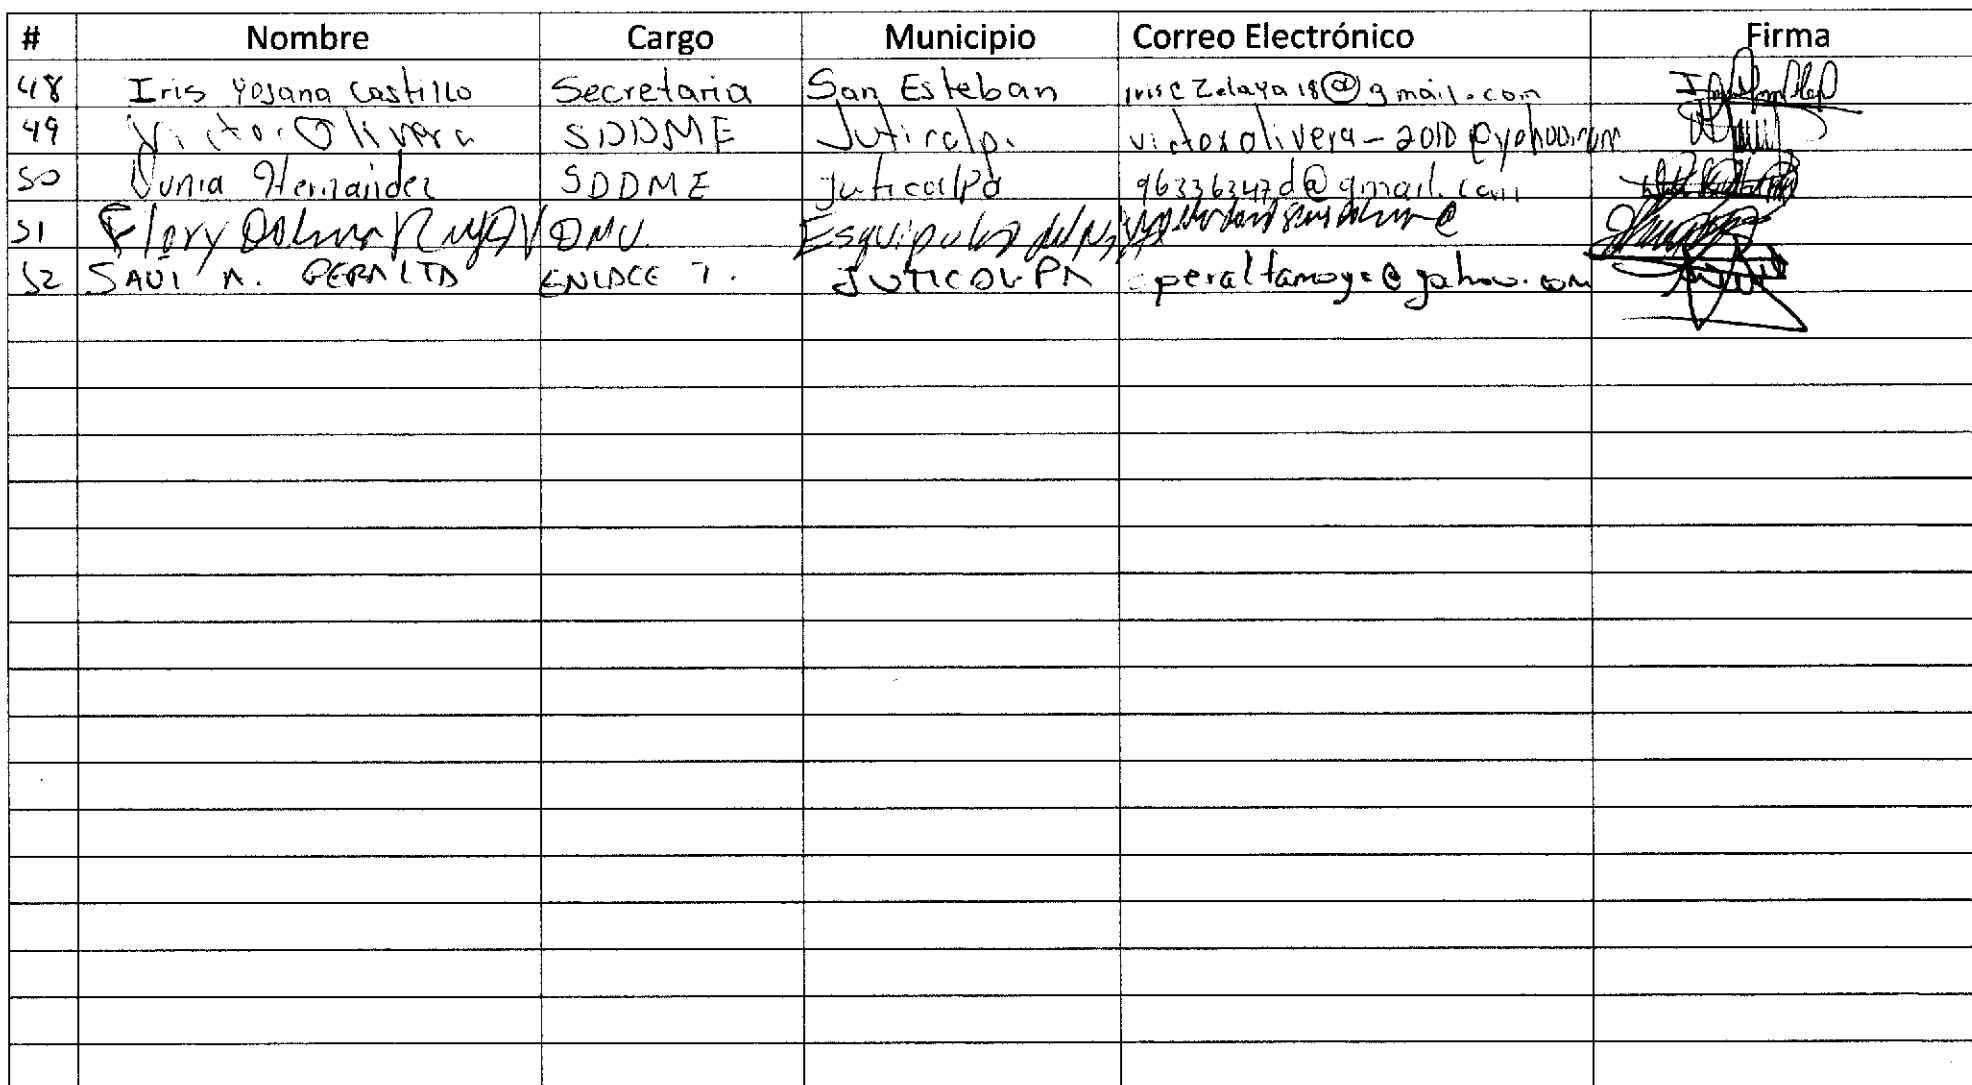 # Nombre Cargo Municipio Correo Electrónico Firma
48 Iris Yosana Castillo Secretaria San Esteban irisczelaya18@gmail.com
49 Victor Olivera SDDME Juticalp. victorolivera-2010@yahoo.com
50 Dunia Hernandez SDDME Juticalpa 96336347d@gmail.com
51 Flory OMU. Esquipulas del
52 SAUl A. PERALTA ENLACE T. JUTICALPA peraltamoya@yahoo.com